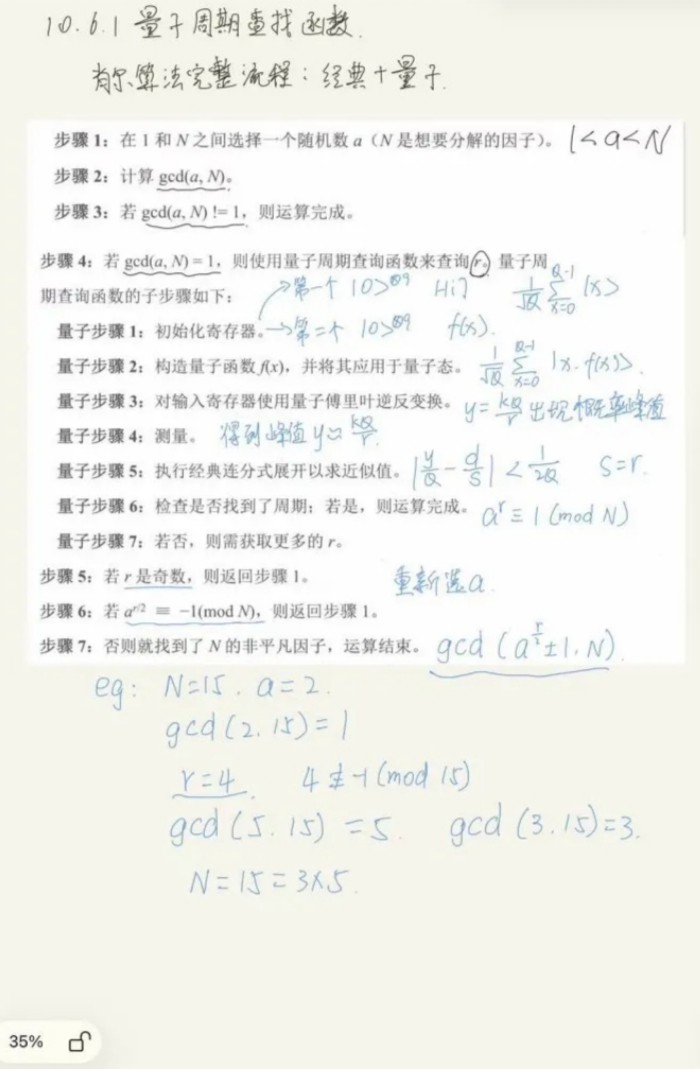 10.6.1 量子周期查找函数.
肖尔算法完整流程：经典+量子.
步骤 1：在 1 和 N 之间选择一个随机数 a（N 是想要分解的因子）。 1<a<N
步骤 2：计算 gcd(a, N)。
步骤 3：若 gcd(a, N) != 1，则运算完成。
步骤 4：若 gcd(a, N) = 1，则使用量子周期查询函数来查询 r。量子周
期查询函数的子步骤如下： →第一个 |0>⊗q H门 1/√Q Σ_{x=0}^{Q-1} |x>
量子步骤 1：初始化寄存器。→第二个 |0>⊗q f(x).
量子步骤 2：构造量子函数 f(x)，并将其应用于量子态。 1/√Q Σ_{x=0}^{Q-1} |x. f(x)>.
量子步骤 3：对输入寄存器使用量子傅里叶逆反变换。 y=kQ/r 出现概率峰值
量子步骤 4：测量。 得到峰值 y≈kQ/r
量子步骤 5：执行经典连分式展开以求近似值。 |y/Q - d/s| < 1/2Q s=r.
量子步骤 6：检查是否找到了周期；若是，则运算完成。 a^r ≡ 1 (mod N)
量子步骤 7：若否，则需获取更多的 r。
步骤 5：若 r 是奇数，则返回步骤 1。 重新选a.
步骤 6：若 a^{r/2} ≡ −1(mod N)，则返回步骤 1。
步骤 7：否则就找到了 N 的非平凡因子，运算结束。 gcd (a^{r/2}±1. N).
eg: N=15. a=2.
gcd (2. 15) = 1
r=4. 4≢-1 (mod 15)
gcd (5. 15) = 5. gcd (3. 15)=3.
N=15=3×5.
35%